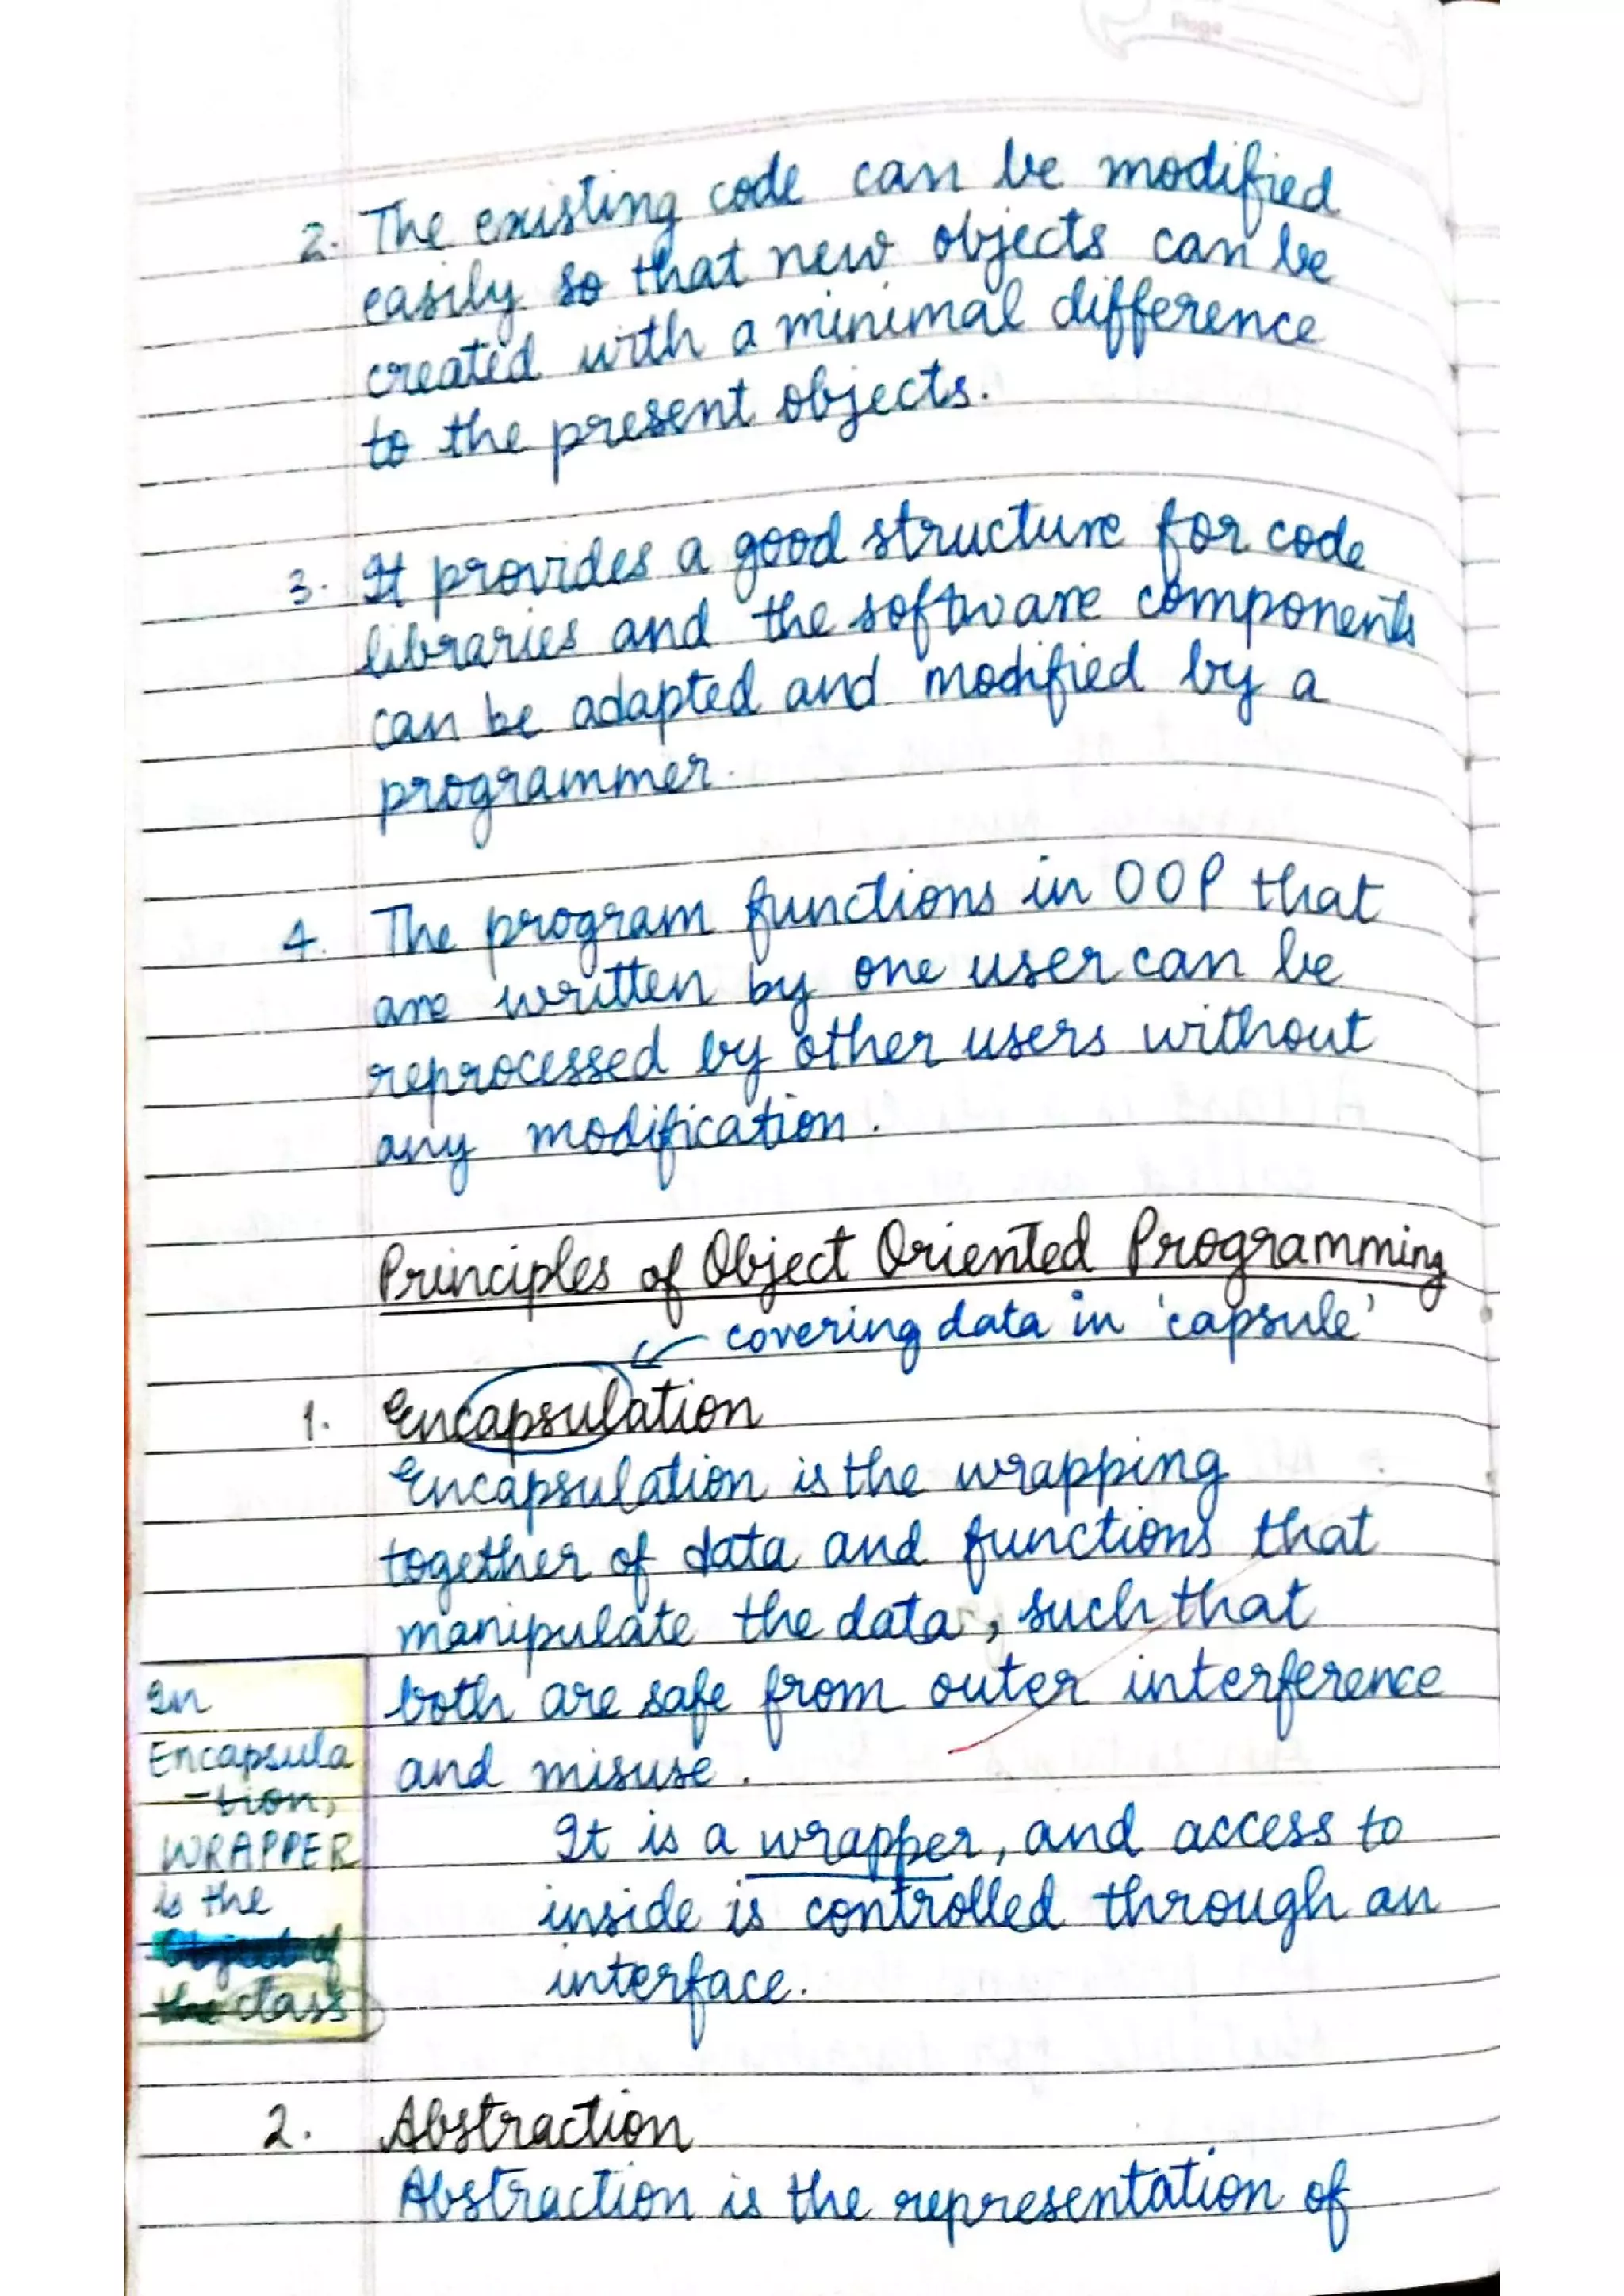 2. The existing code can be modified
easily so that new objects can be
created with a minimal difference
to the present objects.
3. It provides a good structure for code
libraries and the software components
can be adapted and modified by a
programmer.
4. The program functions in OOP that
are written by one user can be
reprocessed by other users without
any modification.
Principles of Object Oriented Programming
covering data in 'capsule'
1. Encapsulation
Encapsulation is the wrapping
together of data and functions that
manipulate the data, such that
both are safe from outer interference
and misuse.
It is a wrapper, and access to
inside is controlled through an
interface.
In
Encapsula
-tion,
WRAPPER
is the
Object of
the class
2. Abstraction
Abstraction is the representation of